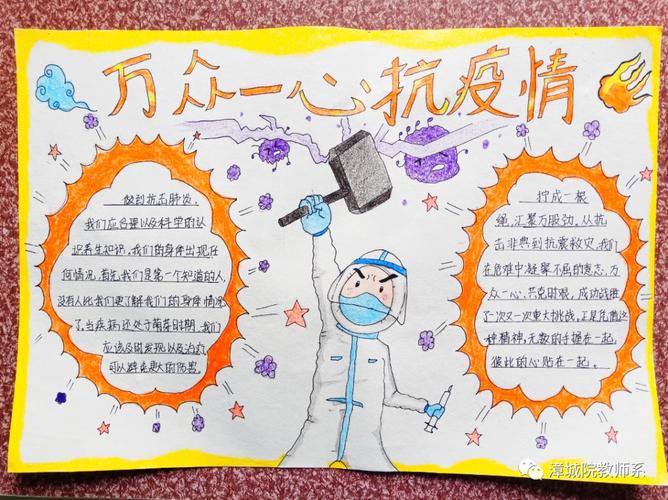 万众一心抗疫情
做到抗击肺炎,
我们应合理以及科学的认
识养生知识,我们的身体出现任
何情况,首先,我们是第一个知道的人,
没有人比我们更了解我们的身体情况
了,当疾病还处于萌芽时期,我们
应该及时发现以及治疗
可以避免更大的伤害。
拧成一根
绳,汇聚万股劲,从抗
击非典到抗震救灾,我们
在危难中凝聚不屈的意志,万
众一心,共克时艰,成功战胜
了一次又一次重大挑战,正是凭借这
种精神,无数的手握在一起,
彼此的心贴在一起。
漳城院教师系